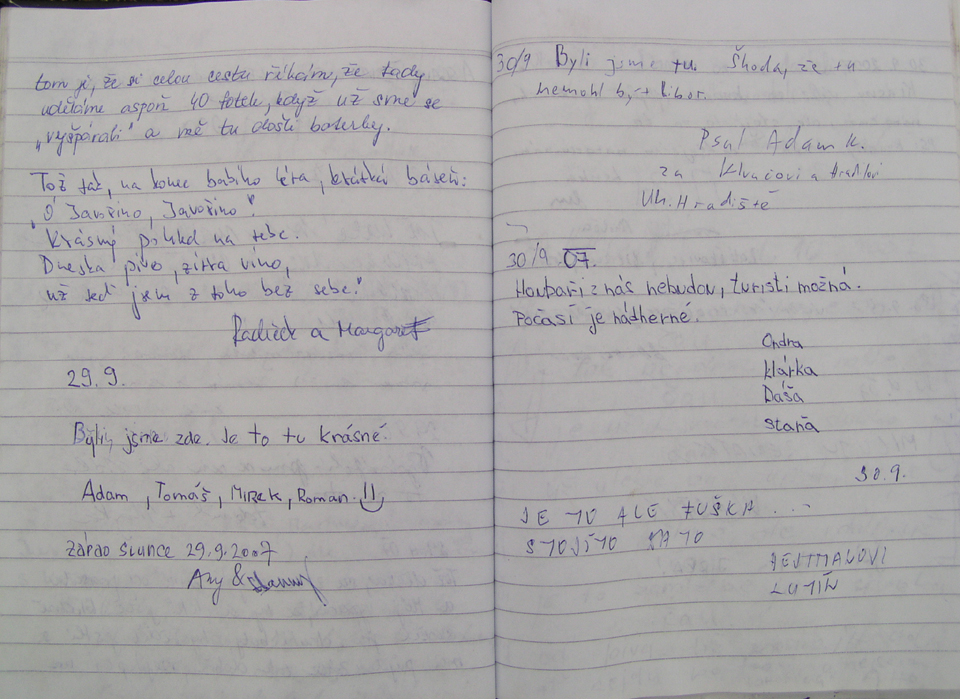 tom je, že si celou cestu říkám, že tady
uděláme aspoň 40 fotek, když už sme se
„vyšpárali“ a mě tu došli baterky.
Tož tak, na konec babího léta, krátká báseň:
„Ó Javořino, Javořino“
Krásný pohled na tebe.
Dneska pivo, zítra víno,
už teď jsem z toho bez sebe.“
Radíček a Margaret
29.9.
Byli jsme zde. Je to tu krásné.
Adam, Tomáš, Mirek, Roman.
západ slunce 29.9.2007
Any &
30/9 Byli jsme tu. Škoda, že tu
nemohl být Libor.
Psal Adam K.
za Klvačovi a Hradilovi
Uh. Hradiště
30/9 07.
Houbaři z nás nebudou, turisti možná.
Počasí je nádherné.
Ondra
Klárka
Dáša
Staňa
30.9.
JE TO ALE FUŠKA ...
STOJÍ TO ZA TO
LUTÍN